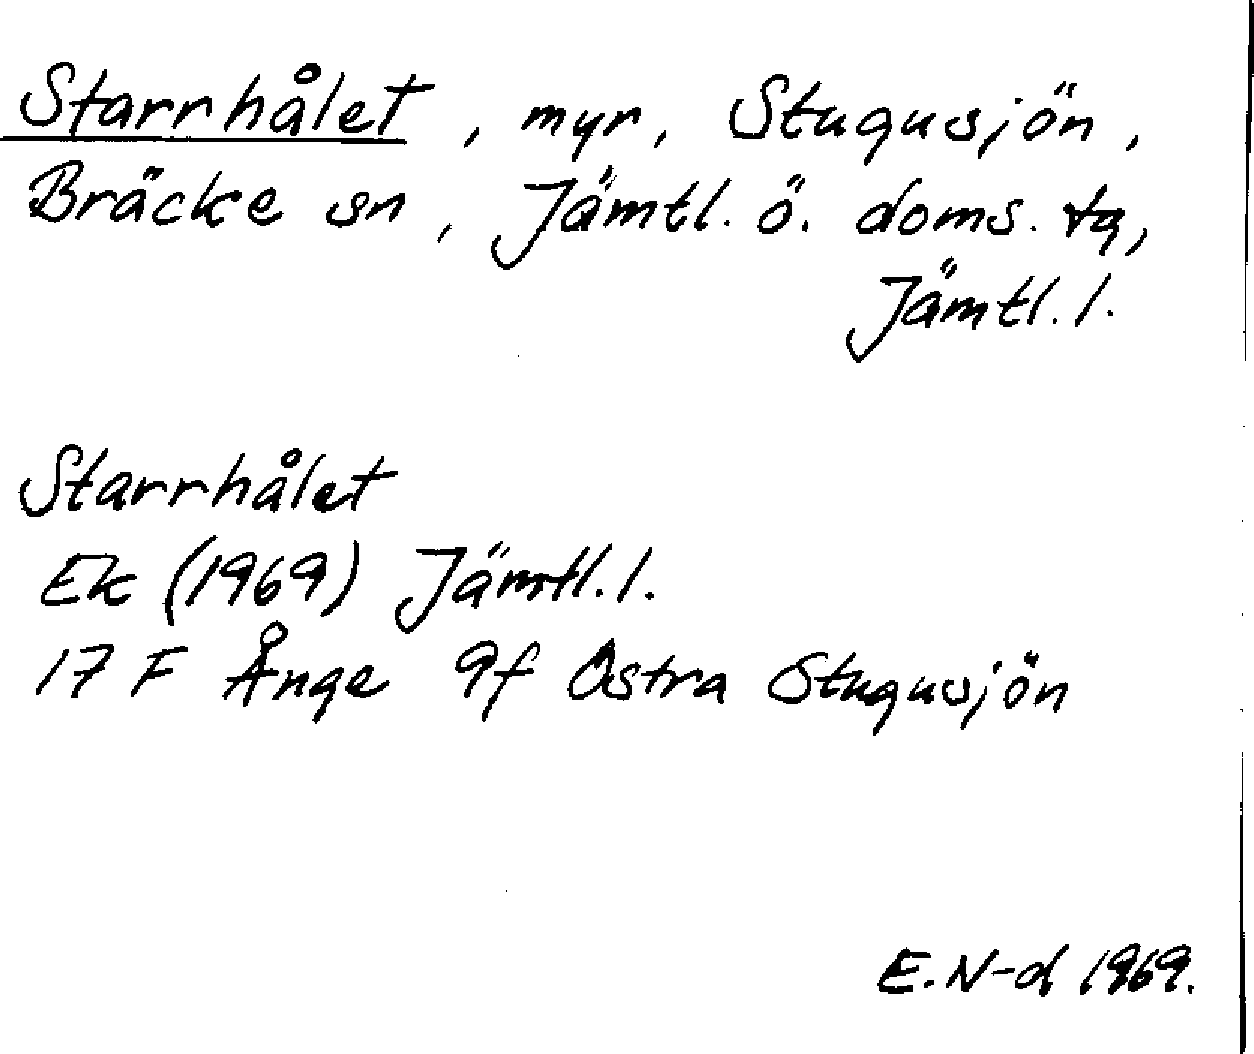 Starrhålet, myr, Stugusjön,
Bräcke sn, Jämtl. ö. doms. tg,
Jämtl. l.
Starrhålet
Ek (1969) Jämtl. l.
17 F Ånge 9f Östra Stugusjön
E. N-d 1969.